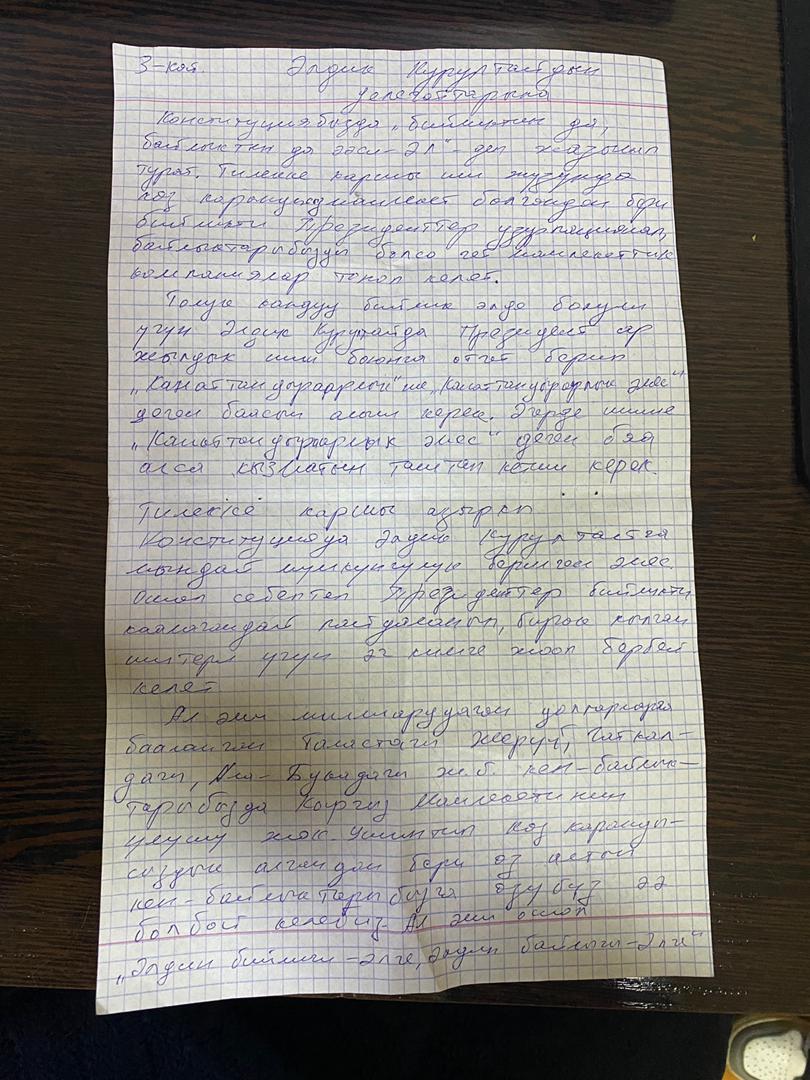 3-кат. Элдик Курултайдын
делегаттарына
Конституциябызда „бийликтин да,
байлыктын да ээси-Эл"- деп жазылып
турат. Тилекке каршы иш жузундо
коз карандысыз мамлекет болгондон бери
бийликти Президенттер узурпациялап,
байлыктарыбызды болсо чет мамлекеттик
компаниялар тоноп келет.
Толук кандуу бийлик элде болуш
учун Элдик Курултайда Президент ар
жылдык иши боюнча отчет берип
„Канааттандыраарлык" же „Канааттандыраарлык эмес"
деген баасын алыш керек. Эгерде иши
„Канааттандыраарлык эмес" деген баа
алса кызматын таштап кетиш керек.
Тилекке каршы азыркы
Конституцияда Элдик Курултайга
мындай мумкунчулук берилген эмес.
Ошол себептен Президенттер бийликти
каалагандай пайдаланып, бирок кылган
иштери учун эч кимге жооп бербей
келет
Ал эми миллиарддаган долларларга
бааланган Таластагы Жеруй, Чаткал-
дагы, Ала-Букадагы ж.б. кен-байлык-
тарыбызда Кыргыз Мамлекетинин
улушу жок. Ушинтип коз каранды-
сыздык алгандан бери оз алтын
кен-байлыктарыбызга озубуз ээ
болбой келебиз. Ал эми ошол
„Элдин бийлиги -Элге, элдин байлыгы-Элге"